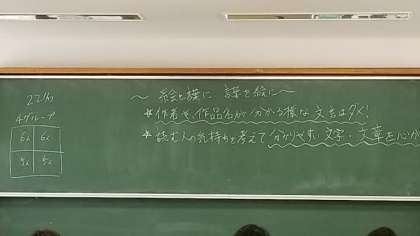 22人
4グループ
6人 6人
5人 5人
〜 絵を謎に 謎を絵に〜
★作者や、作品名が分かる様な文言はダメ!
★読む人の気持ちを考えて分かりやすい文字・文章を心が